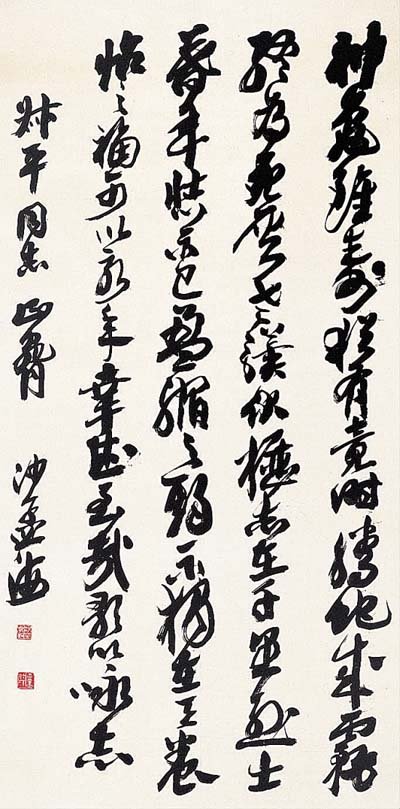 神龜雖壽猶有竟時騰蛇成霧
終为土灰老驥伏櫪志在千里烈士
暮年壯心不已盈縮之期不獨在天養
怡之福可以永年幸甚至哉歌以咏志
平同志正腕 沙孟海